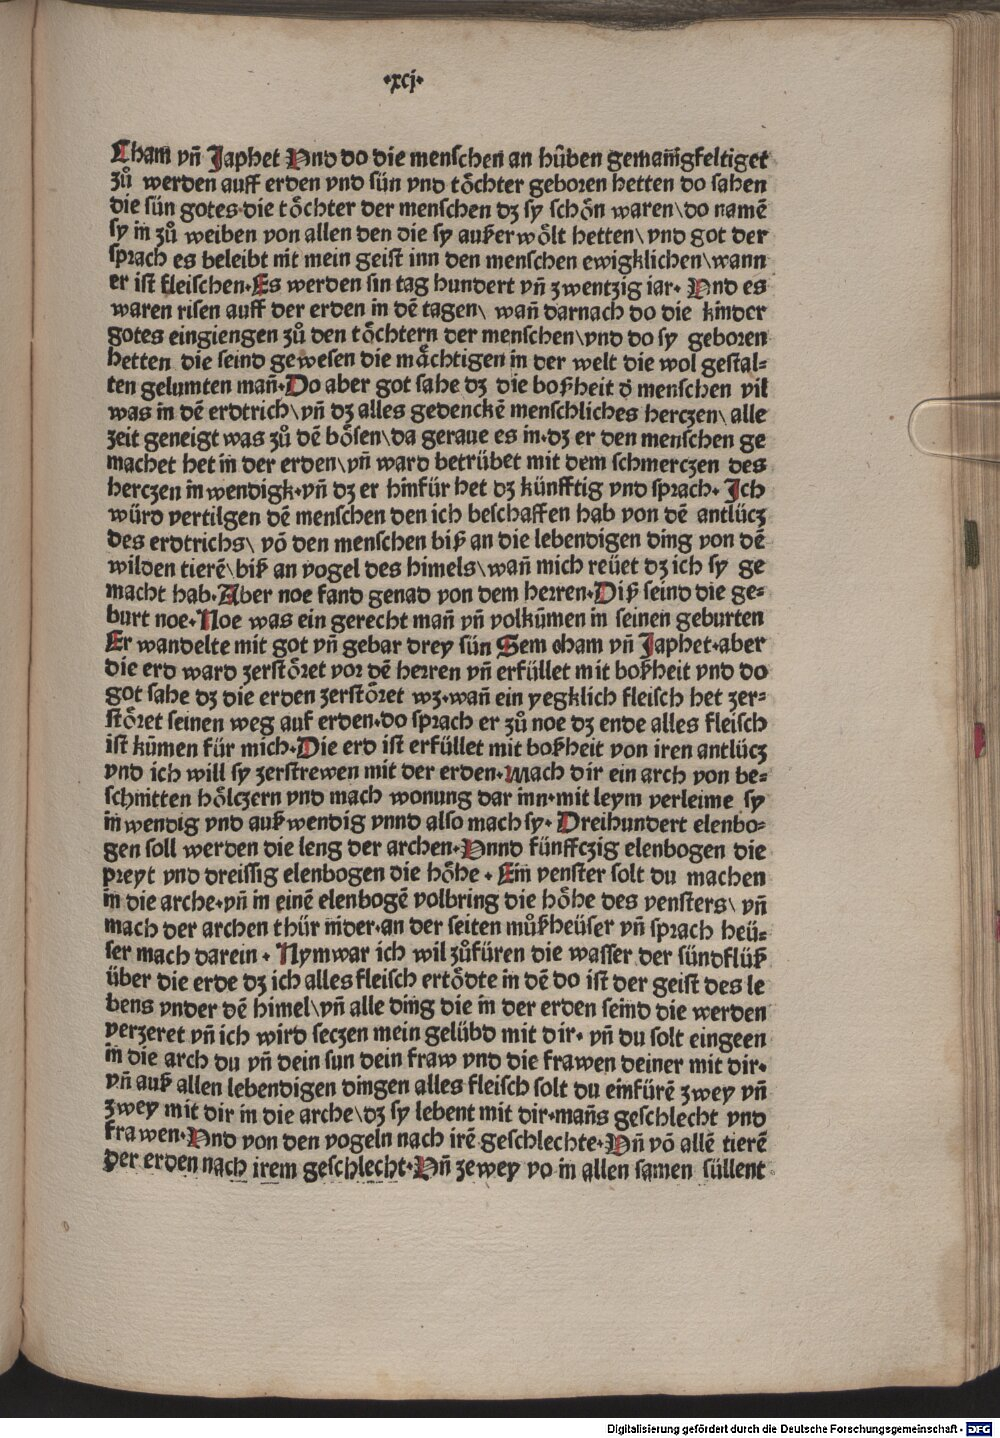 ·xcj·
Cham vñ Japhet Vnd do die menschen an hůben gemañigfeltiget
zů werden auff erden vnd sün vnd tőchter geboren hetten do sahen
die sün gotes·die tőchter der menschen dz sy schőn waren\do namē
sy in zů weiben von allen den die sy außerwőlt hetten\vnd got der
sprach es beleibt nit mein geist inn den menschen ewigklichen\wann
er ist fleischen·Es werden sin tag hundert vñ zwentzig iar· Vnd es
waren risen auff der erden in dē tagen\ wañ darnach do die kinder
gotes eingiengen zů den tőchtern der menschen\vnd do sy geboren
hetten die seind gewesen die mächtigen in der welt die wol gestal=
ten gelumten mañ·Do aber got sahe dz die boßheit d̕ menschen vil
was in dē erdtrich\vñ dz alles gedenckē menschliches herczen\alle
zeit geneigt was zů dē bősen\da geraue es in·dz er den menschen ge
machet het in der erden\vñ ward betrübet mit dem schmerczen des
herczen inwendigk·vñ dz er hinfür het dz künfftig vnd sprach· Ich
würd vertilgen dē menschen den ich beschaffen hab von dē antlücz
des erdtrichs\ vō den menschen biß an die lebendigen ding von dē
wilden tierē\biß an vogel des himels\wañ mich reüet dz ich sy ge
macht hab·Aber noe fand genad von dem herren·Diß seind die ge=
burt noe·Noe was ein gerecht mañ vñ volkūmen in seinen geburten
Er wandelte mit got vñ gebar drey sün Sem cham vñ Japhet·aber
die erd ward zerstőret vor dē herren vñ erfüllet mit boßheit vnd do
got sahe dz die erden zerstőret wz·wañ ein yegklich fleisch het zer=
stőret seinen weg auf erden·do sprach er zů noe dz ende alles fleisch
ist kūmen für mich·Die erd ist erfüllet mit boßheit von iren antlücz
vnd ich will sy zerstrewen mit der erden·Mach dir ein arch von be=
schnitten hőlczern vnd mach wonung dar inn·mit leym verleime sy
inwendig vnd außwendig vnnd also mach sy· Dreihundert elenbo=
gen soll werden die leng der archen·Vnnd fünffczig elenbogen die
preyt vnd dreissig elenbogen die hőhe · Ein venster solt du machen
in die arche·vñ in einē elenbogē volbring die hőhe des vensters\ vñ
mach der archen thür in̄der·an der seiten můßheüser vñ sprach heü=
ser mach darein · Nymwar ich wil zůfüren die wasser der sündflüß
über die erde dz ich alles fleisch ertődte in dē do ist der geist des le
bens vnder dē himel\vñ alle ding die in der erden seind die werden
verzeret vñ ich wird seczen mein gelübd mit dir· vñ du solt eingeen
in die arch du vñ dein sun dein fraw vnd die frawen deiner mit dir·
vñ auß allen lebendigen dingen alles fleisch solt du einfürē zwey vñ
zwey mit dir in die arche\dz sy lebent mit dir·mañs geschlecht vnd
frawen·Vnd von den vogeln nach irē geschlechte·Vñ vō allē tierē
der erden nach irem geschlecht·Vñ zewey vo in allen samen süllent
Digitalisierung gefördert durch die Deutsche Forschungsgemeinschaft - DFG